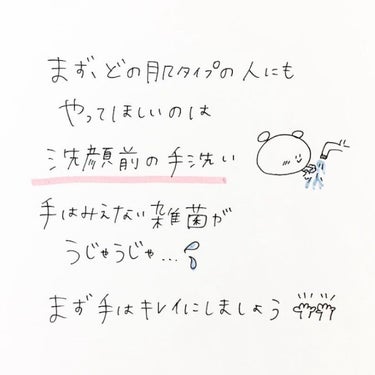 まず、どの肌タイプの人にも
やってほしいのは
洗顔前の手洗い
手はみえない雑菌が
うじゃうじゃ...
まず手はキレイにしましょう